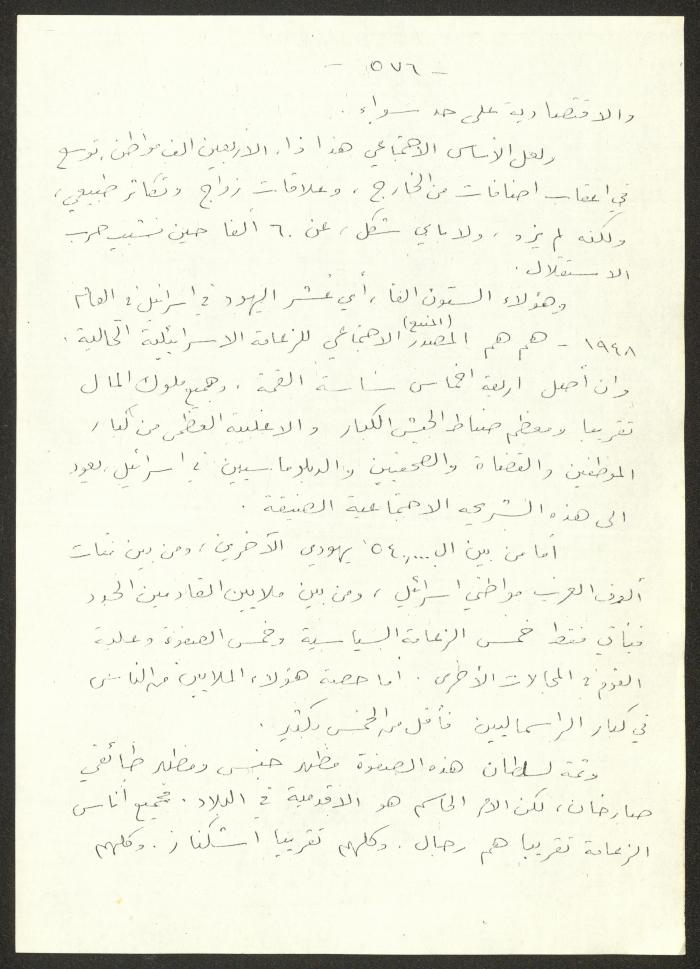 - ٥٧٦ -
والاقتصادية على حد سواء .
ولعل الأساس الاجتماعي هذا ذا الأربعين الف مواطن، توسع
في اعقاب اضافات من الخارج ، وعلاقات زواج وتكاثر طبيعي ،
ولكنه لم يزد ، ولا بأي شكل ، عن ٦٠ ألفا حين نشبت حرب
الاستقلال .
وهؤلاء الستون الفا ، أي عُشر اليهود في اسرائيل في العام
١٩٤٨ - هم هم المصدر (المنبع) الاجتماعي للزعامة الاسرائيلية الحالية .
وان أصل اربعة اخماس ساسة القمة ، وجميع ملوك المال
تقريبا ومعظم ضباط الجيش الكبار والاغلبية العظمى من كبار
الموظفين والقضاة والصحفيين والدبلوماسيين في اسرائيل، يعود
الى هذه الشريحة الاجتماعية الضيقة .
أما من بين الـ ٥٤٠,٠٠٠ يهودي الآخرين ، ومن بين مئات
ألوف العرب مواطني اسرائيل ، ومن بين ملايين القادمين الجدد
فيأتي فقط خمس الزعامة السياسية وخمس الصفوة وعلية
القوم في المجالات الأخرى . أما حصة هؤلاء الملايين من الناس
في كبار الراسماليين فأقل من الخمس بكثير .
وثمة لسلطان هذه الصفوة مظهر جنسي ومظهر طائفي
صارخان ، لكن الأمر الحاسم هو الاقدمية في البلاد . فجميع أناس
الزعامة تقريبا هم رجال . وكلهم تقريبا اشكناز . وكلهم